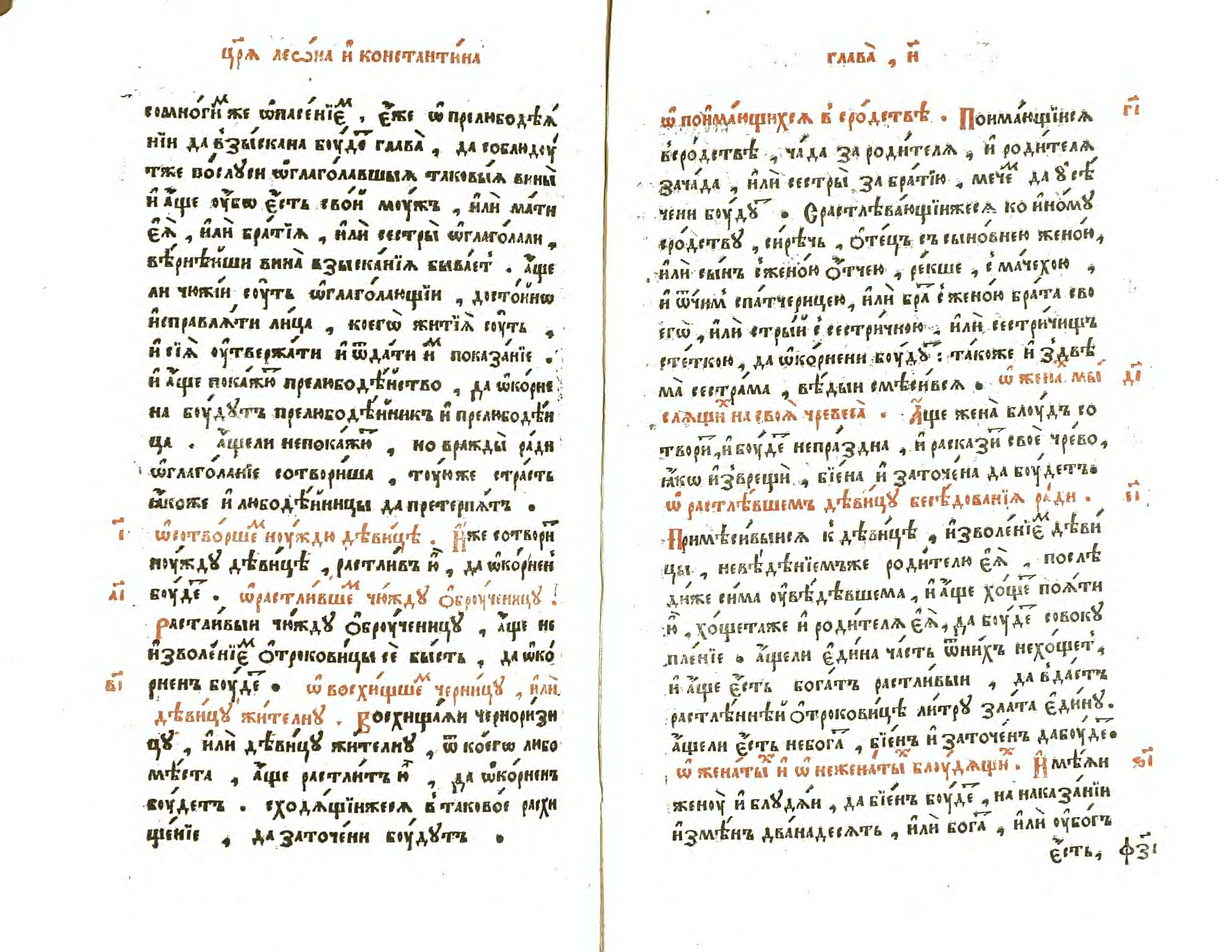 цр҃ѧ леѡ́на и҆ константи́на
сомно́гиⷨ же ѡ҆пасе́нїеⷨ , е҆́же ѡ҆ прелюбодѣѧ́
нїи да взы́скана бꙋ́деⷮ глава̀ , да соблюдꙋ́
тже послꙋ́си ѡ҆глаго́лавшыѧ таковы́ѧ вины̀
и҆ а҆́ще ᲂу҆́бѡ е҆́сть сво́й моу́жъ , и҆лѝ ма́ти
е҆ѧ̀ , и҆лѝ бра́тїѧ , и҆лѝ сестры̀ ѡ҆глаго́лали ,
вѣрнѣ́йши вина̀ взыска́нїѧ быва́етъ . а҆́ще
ли чюжі́и сꙋ́ть ѡ҆глаго́лающїи , досто́йнѡ
и҆справлѧ́ти ли́ца , коегѡ̀ житїѧ̀ сꙋ́ть ,
и҆ сїѧ̀ ᲂу҆твержа́ти и҆ ѿда́ти и҆̀ⷨ показа́нїе .
и҆ а҆́ще пока́жюⷮ прелюбодѣ́йство , да ѡ҆корне
на бꙋ́дꙋтъ прелюбодѣ́йникъ и҆ прелюбодѣ́и
ца . а҆́щели непока́жюⷮ , но вражды̀ ра́ди
ѡ҆глаго́ланїе сотвори́ша , тꙋ́юже стра́сть
ꙗ҆́коже и҆ любодѣ́йницы да претерпѧ́тъ .
і҃ ѡ҆сотво́ршеⷨ нꙋ́ждю дѣви́цѣ . И҆́же сотвори́ⷮ
нꙋ́ждꙋ дѣви́цѣ , растли́въ ю҆̀ , да ѡ҆корне́н
а҃і бꙋ́деⷮ . ѡ҆растли́вшеⷨ чю́ждꙋ ѻ҆брꙋ́ченицꙋ .
Растли́выи чю́ждꙋ ѻ҆брꙋ́ченицꙋ , а҆́ще не
и҆зволе́нїеⷨ ѻ҆трокови́цы се́ бы́сть , да ѡ҆ко́
в҃і рненъ бꙋ́деⷮ . ѡ҆ восхи́щшеⷨ черни́цꙋ , и҆лѝ
дѣви́цꙋ жи́телнꙋ . Восхища́ѧи чернори́зи
цꙋ , и҆лѝ дѣви́цꙋ жи́телнꙋ , ѿ коегѡ ли́бо
мѣ́ста , а҆́ще растли́тъ ю҆̀ , да ѡ҆корне́нъ
бꙋ́детъ . сходѧ́щїижесѧ в таково́е расхи
ще́нїе , да заточе́ни бꙋ́дꙋтъ .
глава̀ , и҃
ѡ҆ пои́мающихсѧ в сро́дствѣ . Пои́мающїисѧ г҃і
всро́дствѣ , ча́да за роди́телѧ , и҆ роди́телѧ
зача́да , и҆лѝ се́стры за бра́тїю , мече́ⷨ да ᲂу҆сѣ́
чени бꙋ́дꙋⷮ . Срастлѣва́ющїижесѧ ко и҆но́мꙋ
сро́дствꙋ , си́рѣчь , ѻ҆те́цъ съ сыно́внею жено́ю ,
и҆лѝ сы́нъ с жено́ю ѻ҆́тчею , ре́кше , с ма́чехою ,
и҆ ѿчи́мⷨ спа́тчерицею , и҆лѝ бра́ⷮ с жено́ю бра́та сво
егѡ̀ , и҆лѝ стры́й с сестри́чною , и҆лѝ сестри́чищъ
сте́ткою , да ѡ҆ко́рнени бꙋ́дꙋⷮ : та́коже и҆ з двѣ́
ма̀ сестра́ма , вѣ́дыи смѣси́всѧ . ѡ҆ жена́ⷯ мы́ д҃і
слѧщиⷯ на своѧ̀ чревеса̀ . А҆́ще жена̀ блꙋ́дъ со
твори́ⷮ , и҆ бꙋ́деⷮ непра́здна , и҆ раска́зиⷮ своѐ чре́во ,
ꙗ҆́кѡ и҆зврещѝ , бїе́на и҆ заточе́на да бꙋ́детъ .
ѡ҆ растлѣ́вшемъ дѣви́цꙋ бесѣ́дованїѧ ра́ди . е҃і
Примѣси́выисѧ к дѣви́цѣ , и҆зволе́нїеⷨ дѣви́
цы , невѣ́дѣнїемъже роди́телю е҆ѧ̀ , послѣ́
ди́же си́ма ᲂу҆вѣ́дѣвшема , и҆ а҆́ще хо́щеⷮ поѧ́ти
ю҆̀ , хо́щетаже и҆ роди́телѧ е҆ѧ̀ , да бꙋ́деⷮ совокꙋ
пле́нїе . а҆́щели є҆ди́на ча́сть ѿни́хъ нехо́щет ,
и҆ а҆́ще е҆́сть бога́тъ растли́выи , да вда́стъ
растлѣ́ннѣй ѻ҆трокови́цѣ ли́трꙋ зла́та є҆ди́нꙋ .
а҆́щели е҆́сть небога́ⷮ , бїе́нъ и҆ заточе́нъ дабꙋ́деⷮ .
ѡ҆ жена́тыⷯ и҆ ѡ҆ нежена́тыⷯ блꙋдѧ́щиⷯ . И҆мѣ́ѧи ѕ҃і
женꙋ̀ и҆ блꙋдѧ́и , да бїе́нъ бꙋ́деⷮ , на наказа́нїи
и҆змѣ́нъ двана́десѧть , и҆лѝ бога́ⷮ , и҆лѝ ᲂу҆бо́гъ
е҆́сть , фз҃і